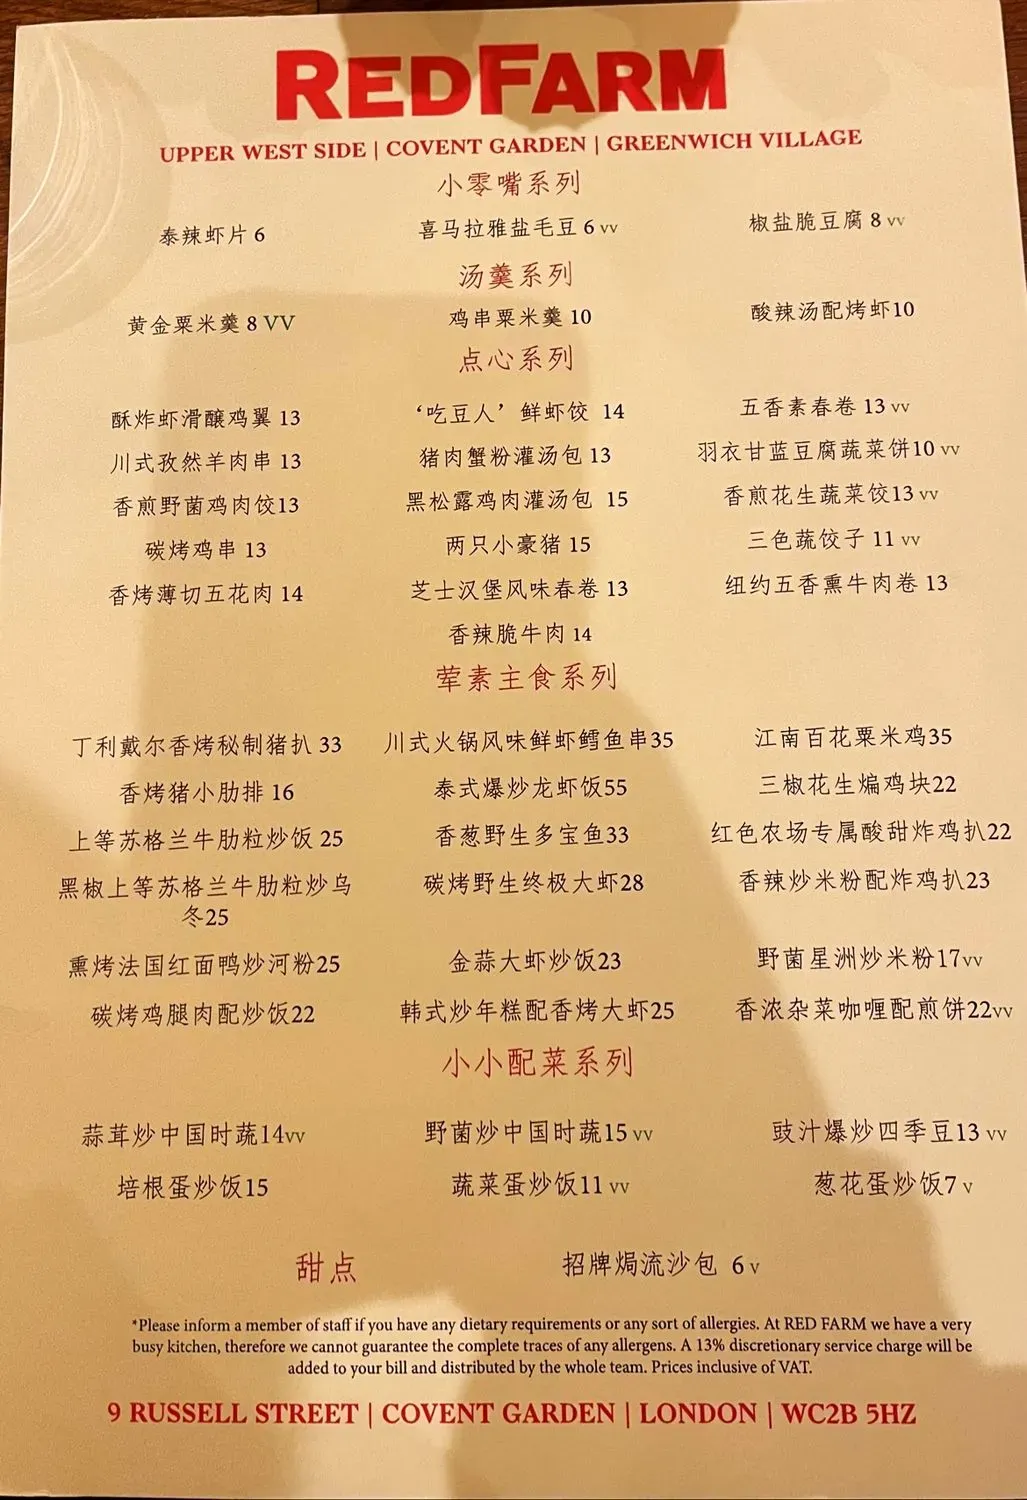 REDFARM
UPPER WEST SIDE | COVENT GARDEN | GREENWICH VILLAGE
小零嘴系列
泰辣虾片 6 喜马拉雅盐毛豆 6 vv 椒盐脆豆腐 8 vv
汤羹系列
黄金粟米羹 8 VV 鸡串粟米羹 10 酸辣汤配烤虾10
点心系列
酥炸虾滑釀鸡翼 13 ‘吃豆人’鲜虾饺 14 五香素春卷 13 vv
川式孜然羊肉串 13 猪肉蟹粉灌汤包 13 羽衣甘蓝豆腐蔬菜饼10 vv
香煎野菌鸡肉饺13 黑松露鸡肉灌汤包 15 香煎花生蔬菜饺13 vv
碳烤鸡串 13 两只小豪猪 15 三色蔬饺子 11 vv
香烤薄切五花肉 14 芝士汉堡风味春卷 13 纽约五香熏牛肉卷 13
香辣脆牛肉 14
荤素主食系列
丁利戴尔香烤秘制猪扒 33 川式火锅风味鲜虾鳕鱼串35 江南百花粟米鸡35
香烤猪小肋排 16 泰式爆炒龙虾饭55 三椒花生煸鸡块22
上等苏格兰牛肋粒炒饭 25 香葱野生多宝鱼33 红色农场专属酸甜炸鸡扒22
黑椒上等苏格兰牛肋粒炒乌 碳烤野生终极大虾28 香辣炒米粉配炸鸡扒23
冬25
熏烤法国红面鸭炒河粉25 金蒜大虾炒饭23 野菌星洲炒米粉17vv
碳烤鸡腿肉配炒饭22 韩式炒年糕配香烤大虾25 香浓杂菜咖喱配煎饼22vv
小小配菜系列
蒜茸炒中国时蔬14vv 野菌炒中国时蔬15 vv 豉汁爆炒四季豆13 vv
培根蛋炒饭15 蔬菜蛋炒饭11 vv 葱花蛋炒饭7 v
甜点 招牌焗流沙包 6 v
*Please inform a member of staff if you have any dietary requirements or any sort of allergies. At RED FARM we have a very
busy kitchen, therefore we cannot guarantee the complete traces of any allergens. A 13% discretionary service charge will be
added to your bill and distributed by the whole team. Prices inclusive of VAT.
9 RUSSELL STREET | COVENT GARDEN | LONDON | WC2B 5HZ